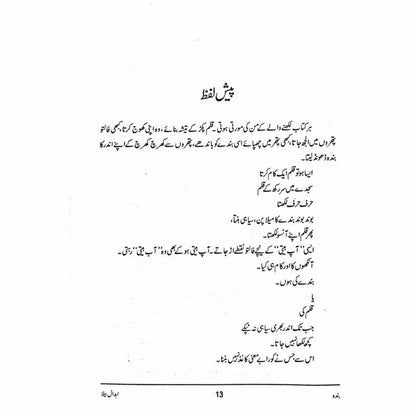 پیش لفظ
ہر کتاب لکھنے والے کے من کی مورتی ہوتی۔ قلم پکڑ کے تیشہ بنائے، وہ اپنی کھوج کرتا، کبھی فالتو
پتھروں میں الجھ جاتا، کبھی پتھر میں چھپائے اسی بندے کو باندھے، پتھروں سے کھرچ کھرچ کے اپنے اندر کا
بندہ ڈھونڈ لیتا۔
ایسا ہو تو قلم ایک کام کرتا
سجدے میں سر رکھ کے قلم
حرف حرف لکھتا
بوند بوند بندے کا میلا پن، سیاہی بنتا،
پھر قلم اپنے آنسو لکھتا۔
ایسی "آپ بیتی" کے نیچے فالتو نقطے اڑ جاتے۔ آپ بیتی ہو کے بھی وہ "اب بیتی" رہتی۔
آنکھوں کا اور کام ہی کیا۔
بندے کی ہوں۔
یا
قلم کی
جب تک اندر بھری سیاہی نہ ٹپکے
کچھ لکھا نہیں جاتا۔
اس سے جس نے کورا بے معنی کاغذ نہیں بننا۔
بندہ 13 ابدال بیلا